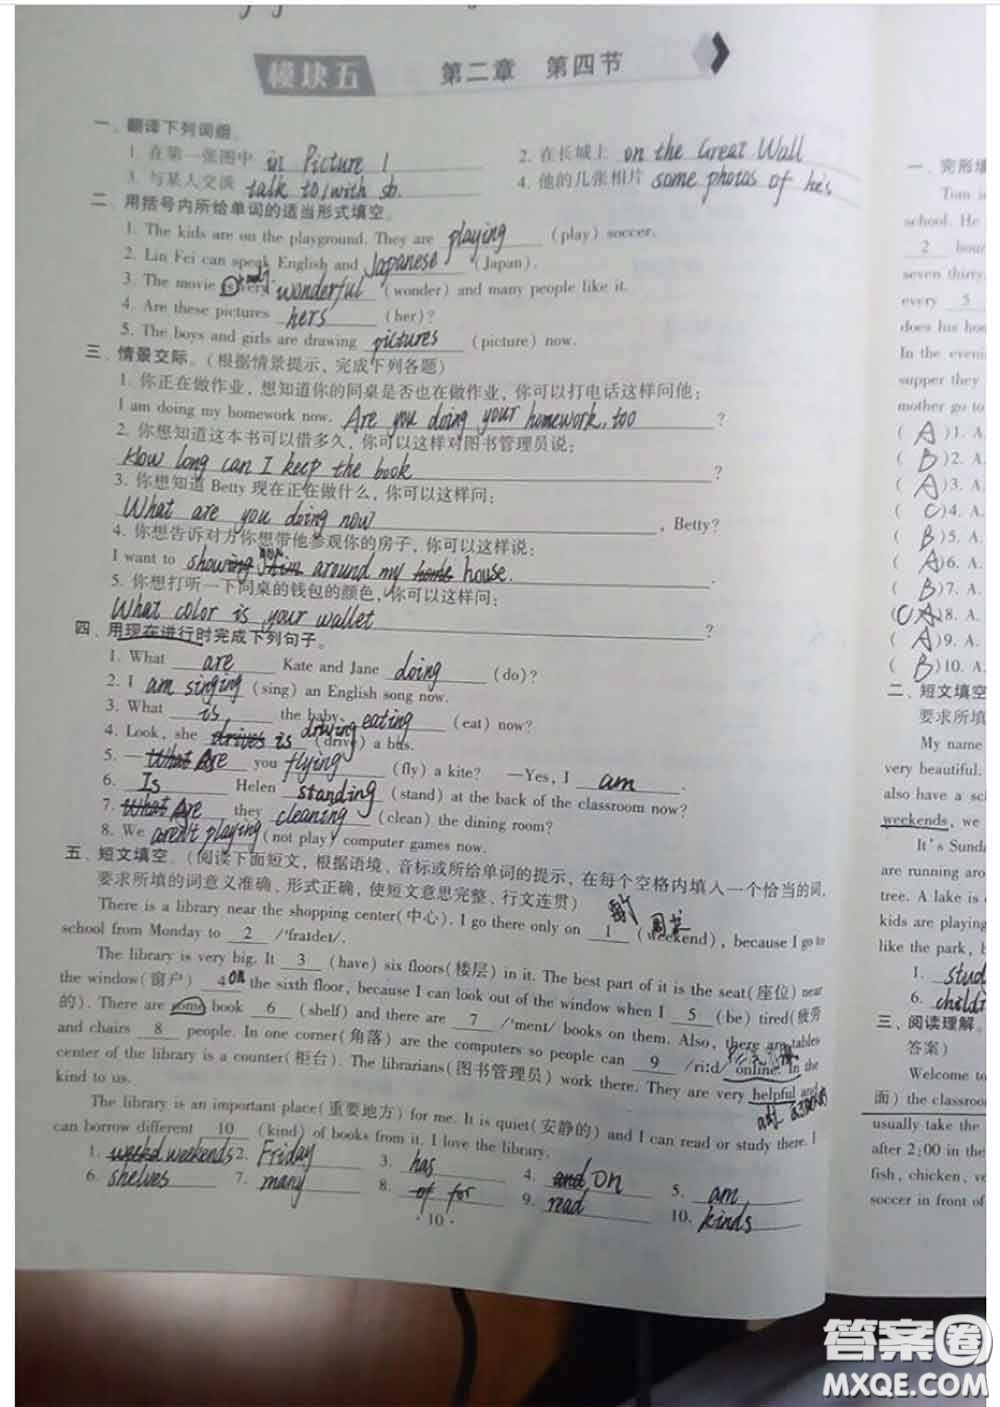 模块五 第二章 第四节
一、翻译下列词组。
1. 在第一张图中 in Picture 1 2. 在长城上 on the Great Wall
3. 与某人交谈 talk to/with sb. 4. 他的几张相片 some photos of he's
二、用括号内所给单词的适当形式填空。
1. The kids are on the playground. They are playing (play) soccer.
2. Lin Fei can speak English and Japanese (Japan).
3. The movie is very wonderful (wonder) and many people like it.
4. Are these pictures hers (her)?
5. The boys and girls are drawing pictures (picture) now.
三、情景交际。(根据情景提示，完成下列各题)
1. 你正在做作业，想知道你的同桌是否也在做作业，你可以打电话这样问他：
I am doing my homework now. Are you doing your homework, too ?
2. 你想知道这本书可以借多久，你可以这样对图书管理员说：
How long can I keep the book ?
3. 你想知道 Betty 现在正在做什么，你可以这样问：
What are you doing now , Betty?
4. 你想告诉对方你想带他参观你的房子，你可以这样说：
I want to showing him around my home house.
5. 你想打听一下同桌的钱包的颜色，你可以这样问：
What color is your wallet ?
四、用现在进行时完成下列句子。
1. What are Kate and Jane doing (do)?
2. I am singing (sing) an English song now.
3. What is the baby eating (eat) now?
4. Look, she drives is driving (drive) a bus.
5. — What Are you flying (fly) a kite? —Yes, I am .
6. Is Helen standing (stand) at the back of the classroom now?
7. What Are they cleaning (clean) the dining room?
8. We aren't playing (not play) computer games now.
五、短文填空。(阅读下面短文，根据语境、音标或所给单词的提示，在每个空格内填入一个恰当的词，
要求所填的词意义准确、形式正确，使短文意思完整、行文连贯)
There is a library near the shopping center(中心). I go there only on 1 (weekend), because I go to
school from Monday to 2 /ˈfraɪdeɪ/.
The library is very big. It 3 (have) six floors(楼层) in it. The best part of it is the seat(座位) near
the window(窗户) 4 on the sixth floor, because I can look out of the window when I 5 (be) tired(疲劳
的). There are some book 6 (shelf) and there are 7 /ˈmenɪ/ books on them. Also, there are tables
and chairs 8 people. In one corner(角落) are the computers so people can 9 /riːd/ online. In the
center of the library is a counter(柜台). The librarians(图书管理员) work there. They are very helpful and
kind to us.
The library is an important place(重要地方) for me. It is quiet(安静的) and I can read or study there. I
can borrow different 10 (kind) of books from it. I love the library.
1. weekends 2. Friday 3. has 4. and on 5. am
6. shelves 7. many 8. of for 9. read 10. kinds
· 10 ·
一、完形填
Tom is
school. He
2 hour
seven thirty.
every 5
does his ho
In the eveni
supper they
mother go to
( A )1. A.
( B )2. A.
( A )3. A.
( C )4. A.
( B )5. A.
( A )6. A.
( B )7. A.
( C A )8. A.
( A )9. A.
( B )10. A.
二、短文填空
要求所填
My name
very beautiful.
also have a sc
weekends, we
It's Sunda
are running aro
tree. A lake is
kids are playing
like the park, b
1. stud
6. child
三、阅读理解。
答案)
Welcome to
面) the classroo
usually take the
after 2:00 in the
fish, chicken, ve
soccer in front of
答案圈
MXQE.COM